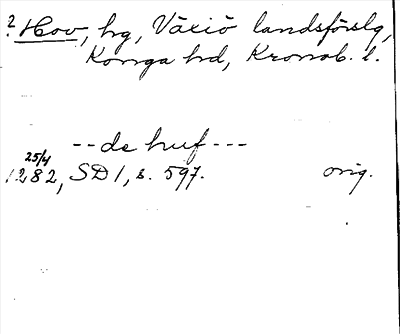 ? Hov, hg, Växiö landsförslg,
Konga hd, Kronob. l.
-- de huf ---
25/4
1282, SD 1, s. 597. orig.